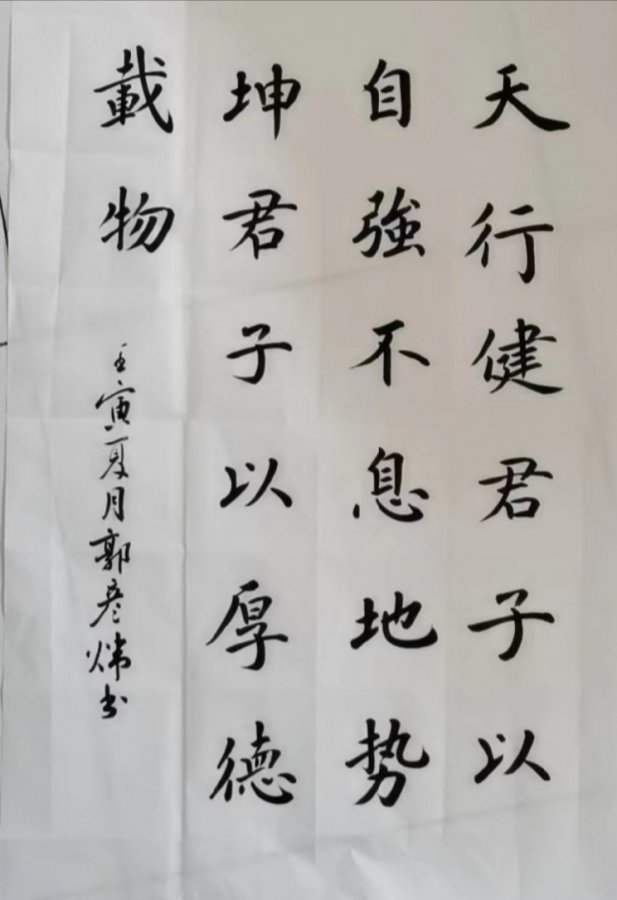 天行健君子以
自強不息地势
坤君子以厚德
載物
壬寅夏月郭彦炜书